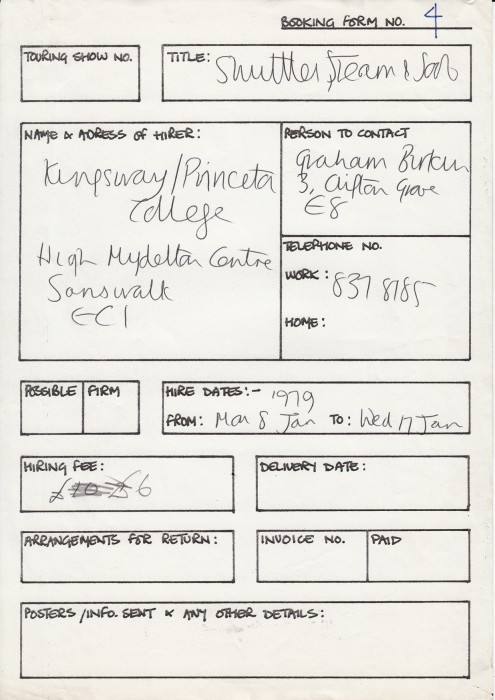 BOOKING FORM NO. 4
TOURING SHOW NO.
TITLE: Shuttles, Steam & Soot
NAME & ADRESS OF HIRER:
Kingsway/Princeton
College
High Myddelton Centre
Sanswalk
EC1
PERSON TO CONTACT
Graham Birkin
3, Clifton Grove
E8
TELEPHONE NO.
WORK: 837 8185
HOME:
POSSIBLE FIRM
HIRE DATES:- 1979
FROM: Mon 8 Jan TO: Wed 17 Jan
HIRING FEE:
£6
DELIVERY DATE:
ARRANGEMENTS FOR RETURN:
INVOICE NO. PAID
POSTERS/INFO. SENT & ANY OTHER DETAILS: